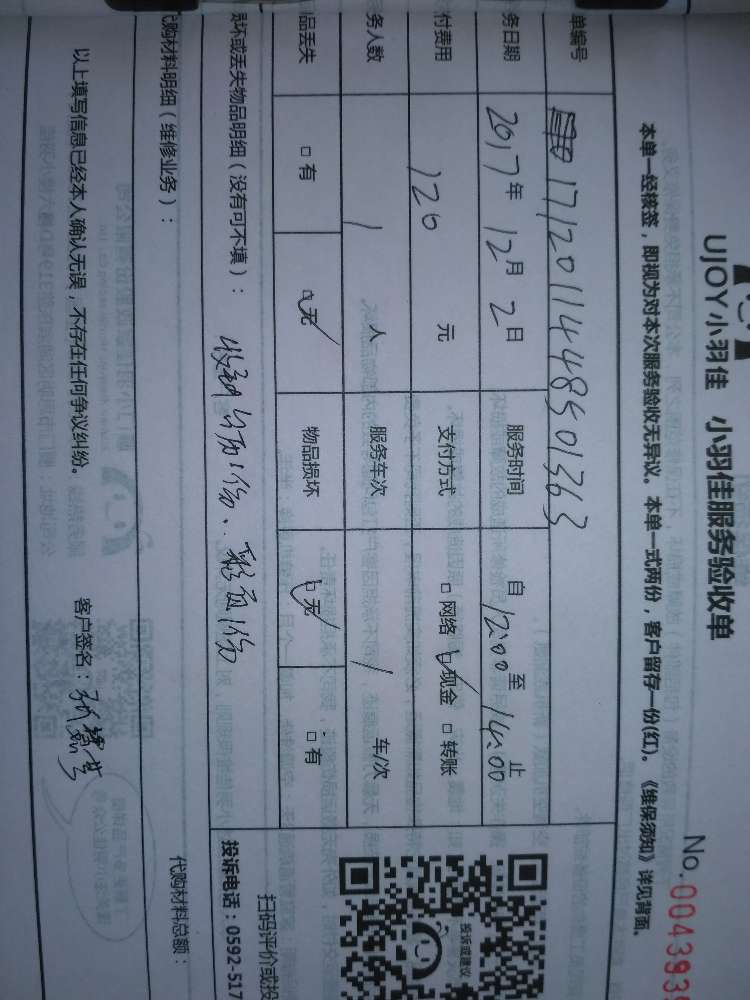 UJOY小羽佳 小羽佳服务验收单
No.004393
本单一经核签，即视为对本次服务验收无异议。本单一式两份，客户留存一份(红)。《维保须知》详见背面。
单编号 1712011448501363
务日期 2017年12月2日 服务时间 自12:00至14:00止
付费用 120元 支付方式 □网络 □✓现金 □转账
务人数 1人 服务车次 / 车/次
品丢失 □有 □✓无 物品损坏 □✓无 □有
损坏或丢失物品明细（没有可不填）：收到台历1份、彩页1份
代购材料明细（维修业务）：
代购材料总额：
以上填写信息已经本人确认无误，不存在任何争议纠纷。 客户签名：
投诉或建议
扫码评价或投
投诉电话：0592-517